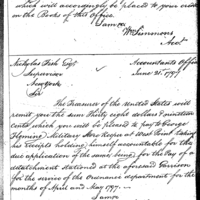 which will accordingly be placed to your credit
in the Books of this Office
I am &c
Wm Simmons
Acct
Nicholas Fish Esqr
Supervisor
New York
Sir
Accountants Office
June 21. 1797
The Treasurer of the United States will
remit you the sum thirty eight dollars & nineteen
cents which you will be pleased to pay to George
Fleming Military Store Keeper at West Point taking
his receipts holding himself accountable for the
due application of the same, being for the Pay of a
detachment stationed at the aforesaid Garrison
for the service of the Ordnance department for the
months of April and May 1797.
I am &c